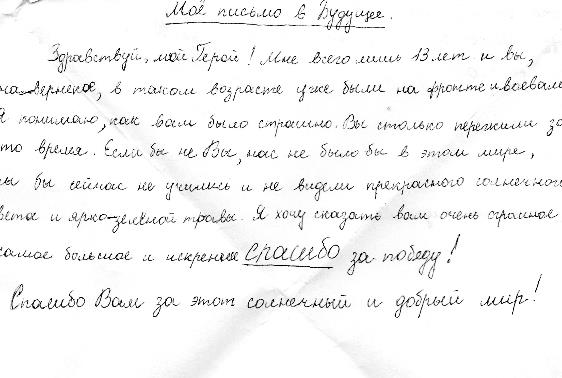 Моё письмо в Будущее.
Здравствуй, мой Герой! Мне всего лишь 13 лет и вы,
наверное, в таком возрасте уже были на фронте и воевали
Я понимаю, как вам было страшно. Вы столько пережили за
то время. Если бы не Вы, нас не было бы в этом мире,
ы бы сейчас не учились и не видели прекрасного солнечного
вета и ярко-зелёной травы. Я хочу сказать вам очень огромное
самое большое и искреннее спасибо за победу!
Спасибо Вам за этот солнечный и добрый мир!